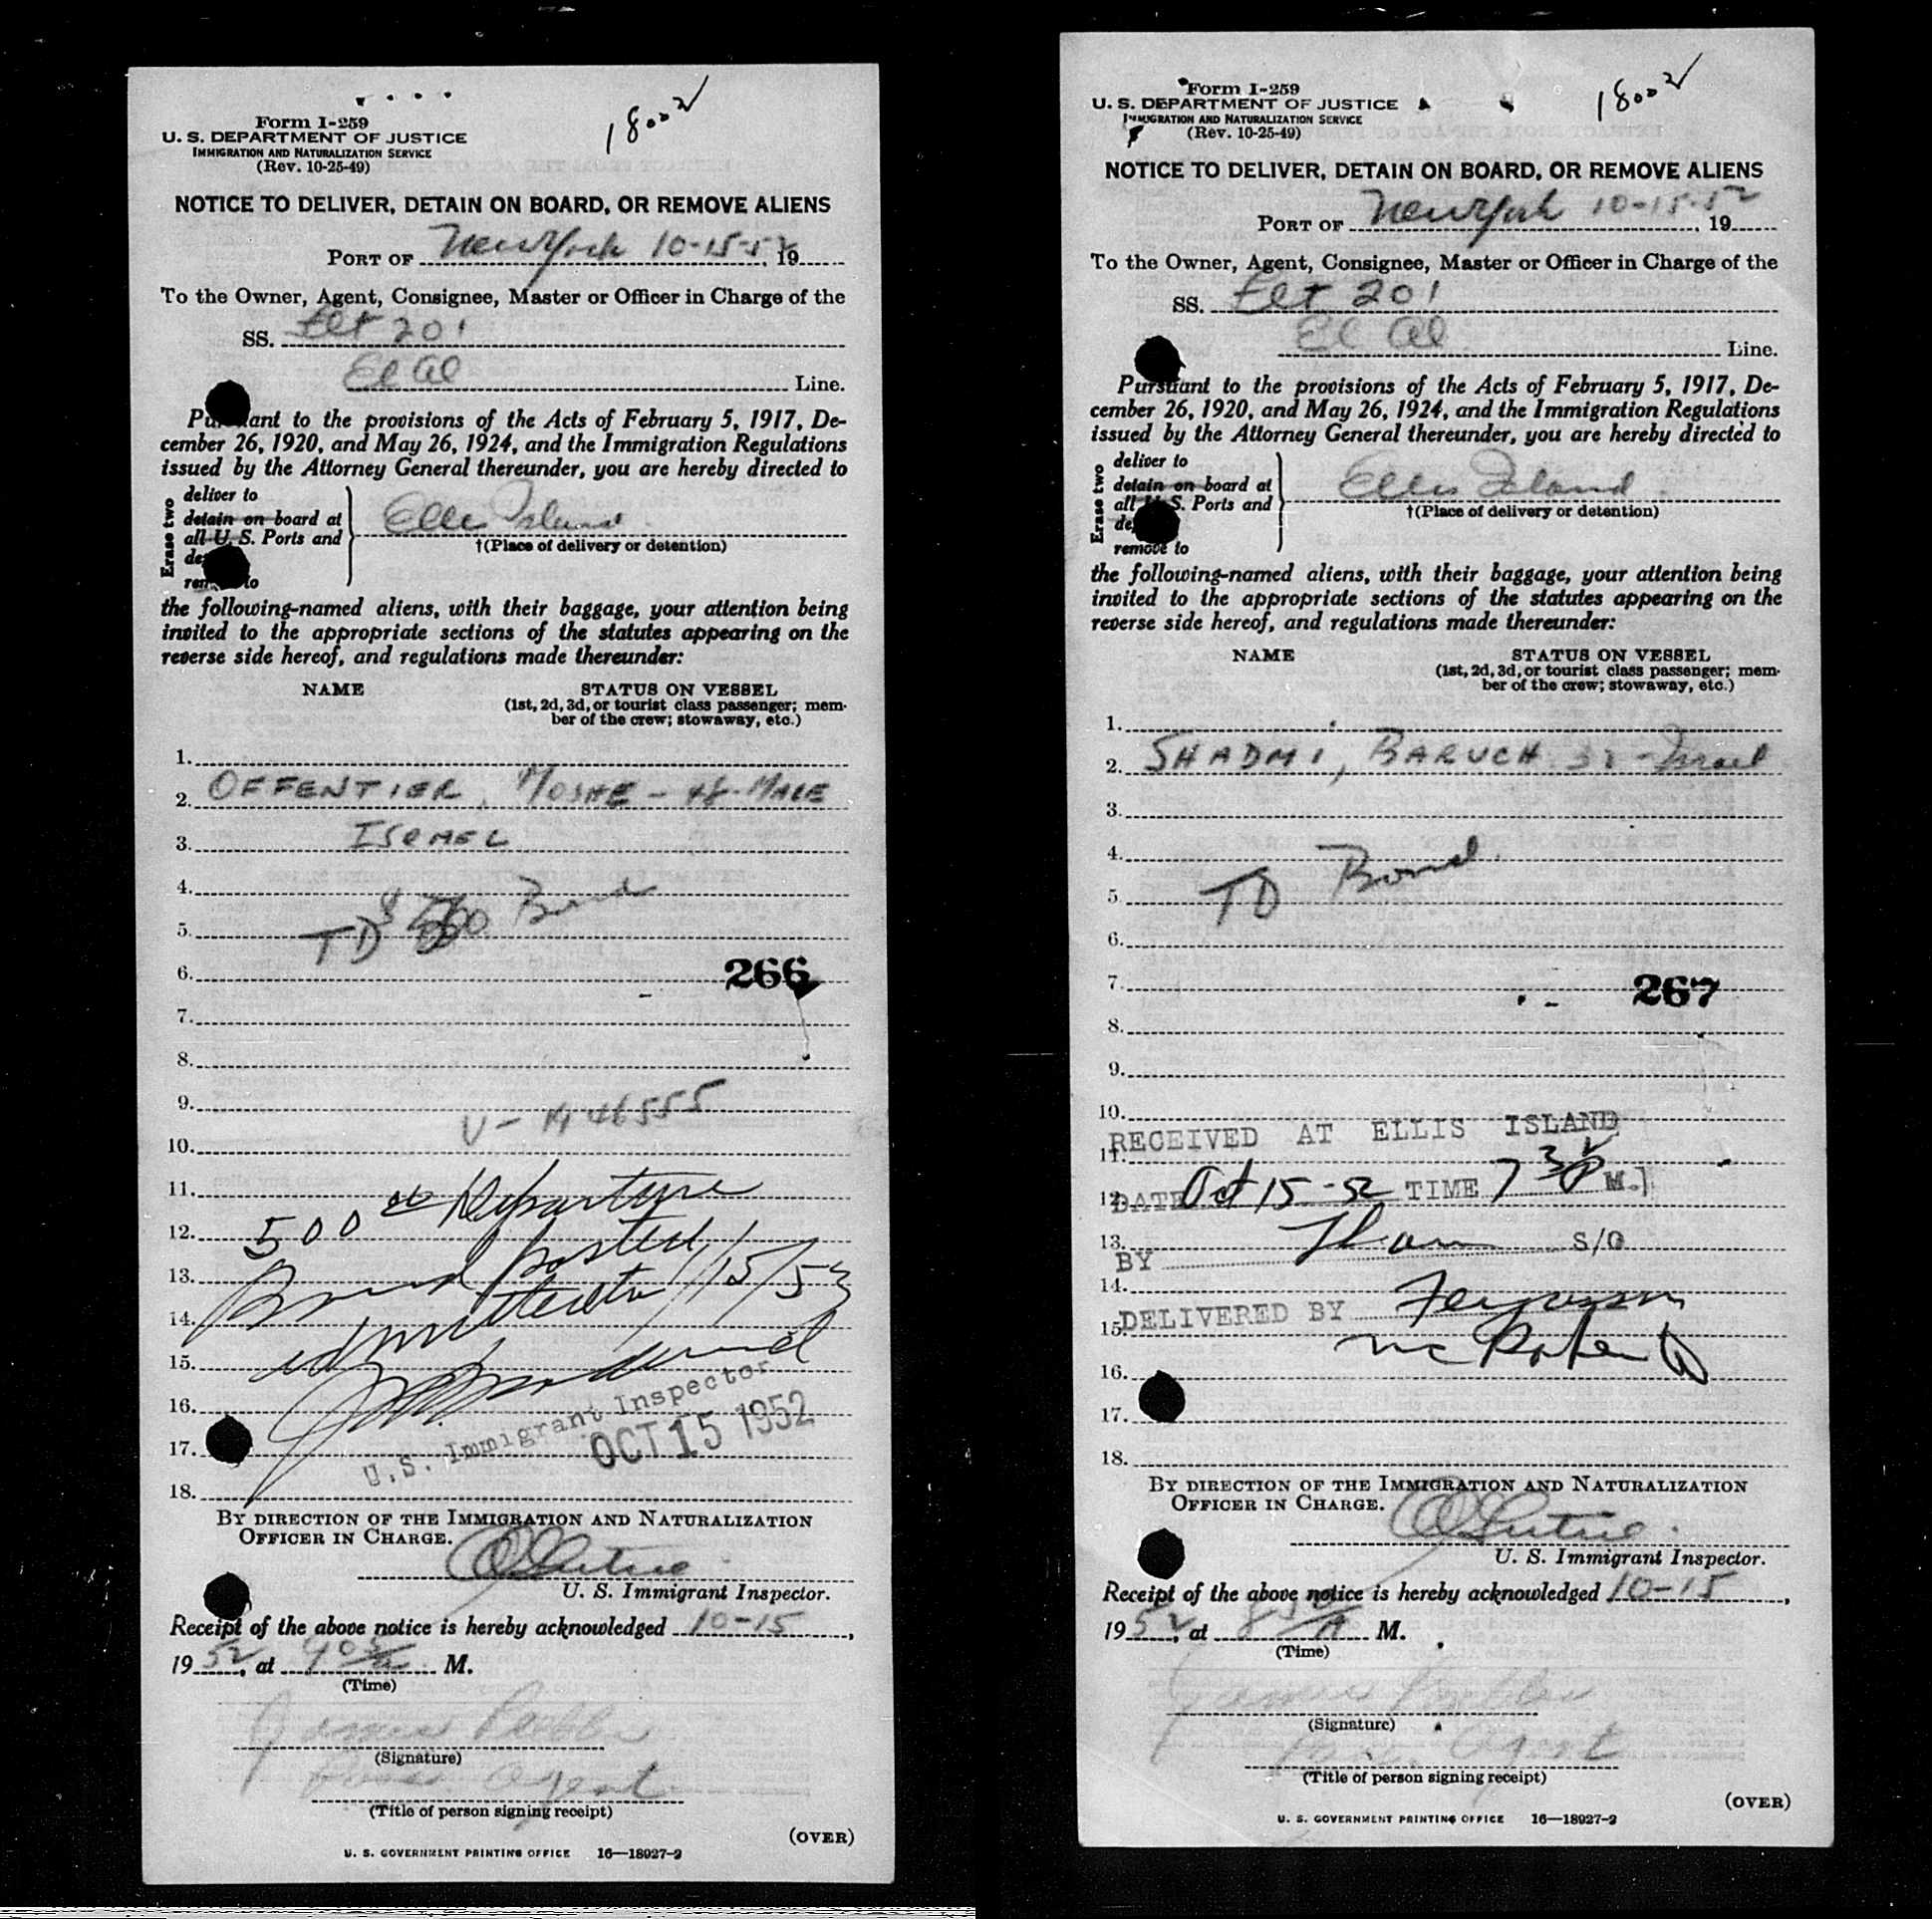 Form I-259
U. S. DEPARTMENT OF JUSTICE
IMMIGRATION AND NATURALIZATION SERVICE
(Rev. 10-25-49)
18002
NOTICE TO DELIVER, DETAIN ON BOARD, OR REMOVE ALIENS
PORT OF New York 10-15-52, 19
To the Owner, Agent, Consignee, Master or Officer in Charge of the
SS. Flt 201
El Al Line.
Pursuant to the provisions of the Acts of February 5, 1917, De-
cember 26, 1920, and May 26, 1924, and the Immigration Regulations
issued by the Attorney General thereunder, you are hereby directed to
Erase two
deliver to
detain on board at
all U. S. Ports and
remove to
Ellis Island
†(Place of delivery or detention)
the following-named aliens, with their baggage, your attention being
invited to the appropriate sections of the statutes appearing on the
reverse side hereof, and regulations made thereunder:
NAME STATUS ON VESSEL
(1st, 2d, 3d, or tourist class passenger; mem-
ber of the crew; stowaway, etc.)
1.
2. OFFENTIER, MOSHE - 48-MALE
3. ISRAEL
4.
5. TD $500 Bond
6. 266
7.
8.
9.
V- 46555
10.
11. 500 Departure
12. Bond posted
13. 1/15/53
14. admitted to
15.
16. U.S. Immigrant Inspector
17. OCT 15 1952
18.
BY DIRECTION OF THE IMMIGRATION AND NATURALIZATION
OFFICER IN CHARGE.
U. S. Immigrant Inspector.
Receipt of the above notice is hereby acknowledged 10-15,
1952, at 905 A M.
(Time)
James
(Signature)
Pass. Agent
(Title of person signing receipt)
(OVER)
U. S. GOVERNMENT PRINTING OFFICE 16—18927-2
Form I-259
U. S. DEPARTMENT OF JUSTICE
IMMIGRATION AND NATURALIZATION SERVICE
(Rev. 10-25-49)
18002
NOTICE TO DELIVER, DETAIN ON BOARD, OR REMOVE ALIENS
PORT OF New York 10-15-52, 19
To the Owner, Agent, Consignee, Master or Officer in Charge of the
SS. Flt 201
El Al Line.
Pursuant to the provisions of the Acts of February 5, 1917, De-
cember 26, 1920, and May 26, 1924, and the Immigration Regulations
issued by the Attorney General thereunder, you are hereby directed to
Erase two
deliver to
detain on board at
all U. S. Ports and
remove to
Ellis Island
†(Place of delivery or detention)
the following-named aliens, with their baggage, your attention being
invited to the appropriate sections of the statutes appearing on the
reverse side hereof, and regulations made thereunder:
NAME STATUS ON VESSEL
(1st, 2d, 3d, or tourist class passenger; mem-
ber of the crew; stowaway, etc.)
1.
2. SHADMI, BARUCH 32 - Israel
3.
4.
5. TD Bond
6.
7. 267
8.
9.
10.
RECEIVED AT ELLIS ISLAND
11.
12. DATE Oct 15-52 TIME 7 30 P M.]
13. BY S/O
14.
15. DELIVERED BY Ferguson
McRoberts
16.
17.
18.
BY DIRECTION OF THE IMMIGRATION AND NATURALIZATION
OFFICER IN CHARGE.
U. S. Immigrant Inspector.
Receipt of the above notice is hereby acknowledged 10-15,
1952, at 850 A M.
(Time)
James
(Signature)
Pass. Agent
(Title of person signing receipt)
(OVER)
U. S. GOVERNMENT PRINTING OFFICE 16—18927-2